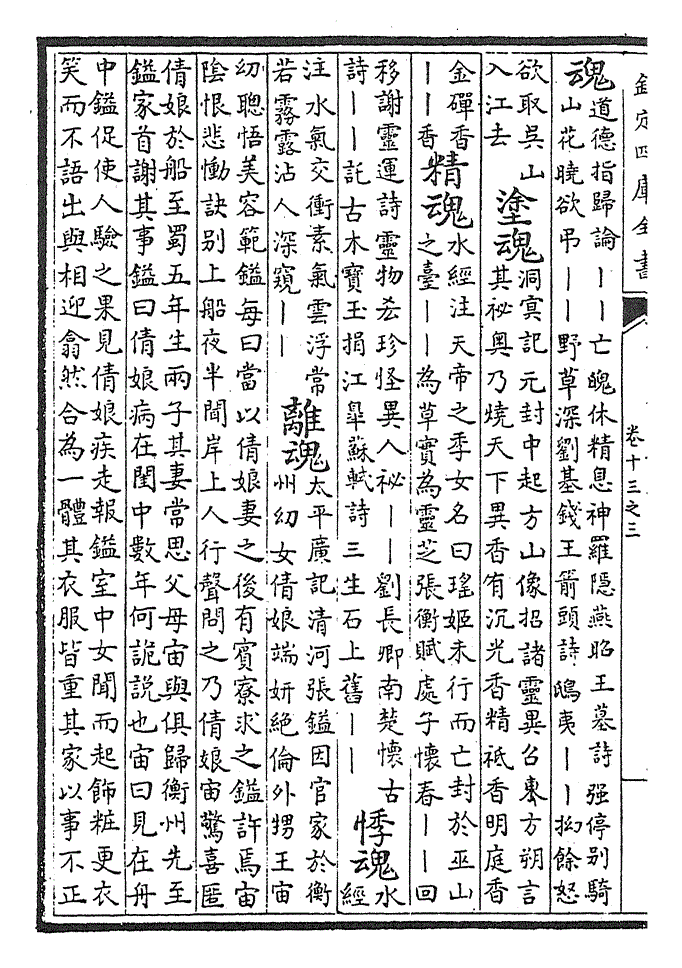 欽定四庫全書
卷十三之三
魂
道德指歸論――亡魄休精息神羅隱燕昭王墓詩强停別騎
山花曉欲弔――野草深劉基錢王箭頭詩鴟夷――拗餘怒
欲取吳山
入江去
塗魂
洞冥記元封中起方山像招諸靈異召東方朔言
其祕奥乃燒天下異香有沉光香精祗香明庭香
金磾香
――香
精魂
水經注天帝之季女名曰瑤姬未行而亡封於巫山
之臺――為草實為靈芝張衡賦處子懷春――回
移謝靈運詩靈物吝珍怪異人祕――劉長卿南楚懷古
詩――託古木寶玉捐江皐蘇軾詩三生石上舊――
悸魂
水
經
注水氣交衝素氣雲浮常
若霧露沾人深窺――
離魂
太平廣記清河張鎰因官家於衡
州幼女倩娘端妍絕倫外甥王宙
幼聰悟美容範鎰每曰當以倩娘妻之後有賓寮求之鎰許焉宙
陰恨悲慟訣別上船夜半聞岸上人行聲問之乃倩娘宙驚喜匿
倩娘於船至蜀五年生兩子其妻常思父母宙與俱歸衡州先至
鎰家首謝其事鎰曰倩娘病在閨中數年何詭說也宙曰見在舟
中鎰促使人驗之果見倩娘疾走報鎰室中女聞而起飾粧更衣
笑而不語出與相迎翕然合為一體其衣服皆重其家以事不正